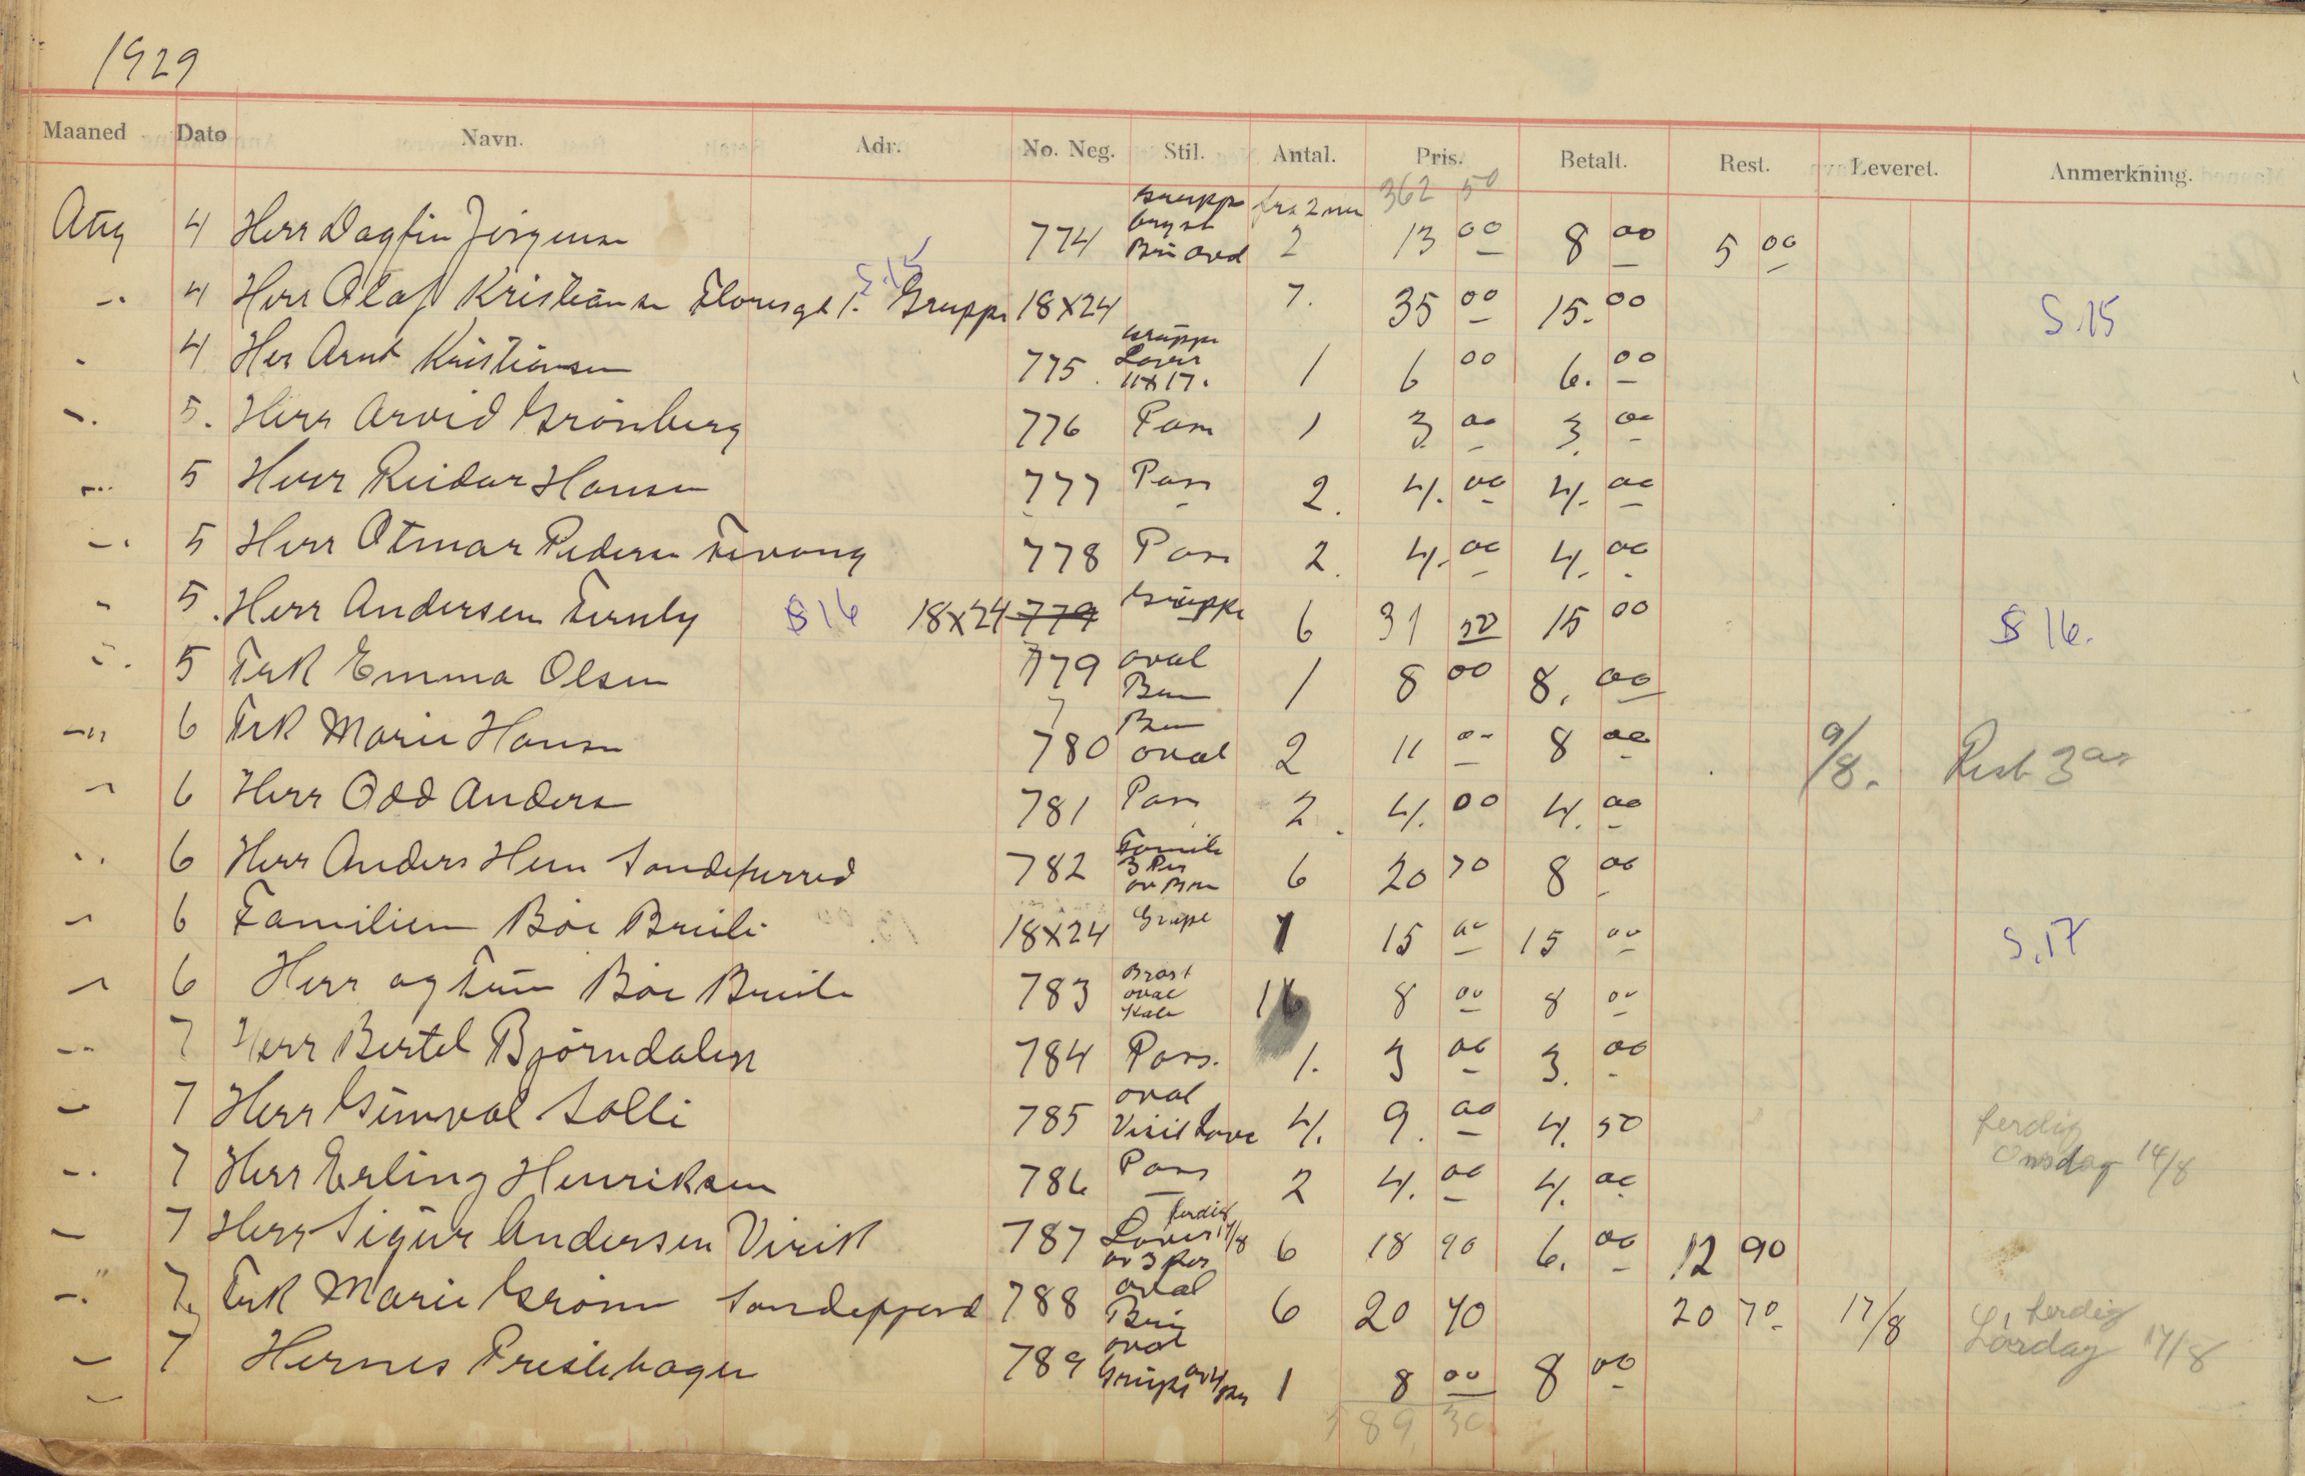 1929
Maaned Dato Navn. Adr. No. Neg. Stil. Antal. Pris. Betalt. Rest. Leveret. Anmerkning.
362 50
Aug 4 Herr Dagfin Jörgensen 774 Gruppe bryst fra 2 2 13 00 8 00 5 00
4 Herr Olaf Kristiansen S.15 Gruppe 18x24 7. 35 00 15.00 S.15
4 Her Arnt Kristiansen 775 Gruppe 11x17. 1 6 00 6. 00
5. Herr Arvid Grönberg 776 Pass 1 3 00 3. 00
5 Herr Reidar Hansen 777 Pass 2. 4. 00 4. 00
5 Herr Otmar Pedersen 778 Pass 2. 4. 00 4. 00
5. Herr Andersen S 16 18x24 779 Gruppe 6 31 50 15 00 S 16.
5 Frk Emma Olsen 779 oval 1 8 00 8. 00
6 Frk Marie Hansen 780 oval 2 11 00 8 00 9/8. Rest 3 00
6 Herr Odd Anders 781 Pass 2. 4. 00 4. 00
6 Herr Anders Hem Sandeherred 782 Famili 3 Per 6 20 70 8 00
6 Familien Böe 18x24 Gruppe 1 15 00 15 00 S.17
6 Herr og Frue Böe 783 Bröst oval 1 8 00 8 00
7 Herr Bertel Björndalen 784 Pass. 1. 3 00 3. 00
7 Herr Gunval Solli 785 oval Visit 4. 9. 00 4. 50 ferdig Onsdag 14/8
7 Herr Erling Henriksen 786 Pass 2 4. 00 4. 00
7 Herr Sigur Andersen Virik 787 ferdig 17/8 av 3 Per 6 18 90 6. 00 12 90
7. Frk Marie Grönn Sandefjord 788 oval 6 20 70 20 70 17/8 ferdig Lördag 17/8
7 Hernes Prestehagen 789 oval Gruppe av 4 Per 1 8 00 8 00
589 30